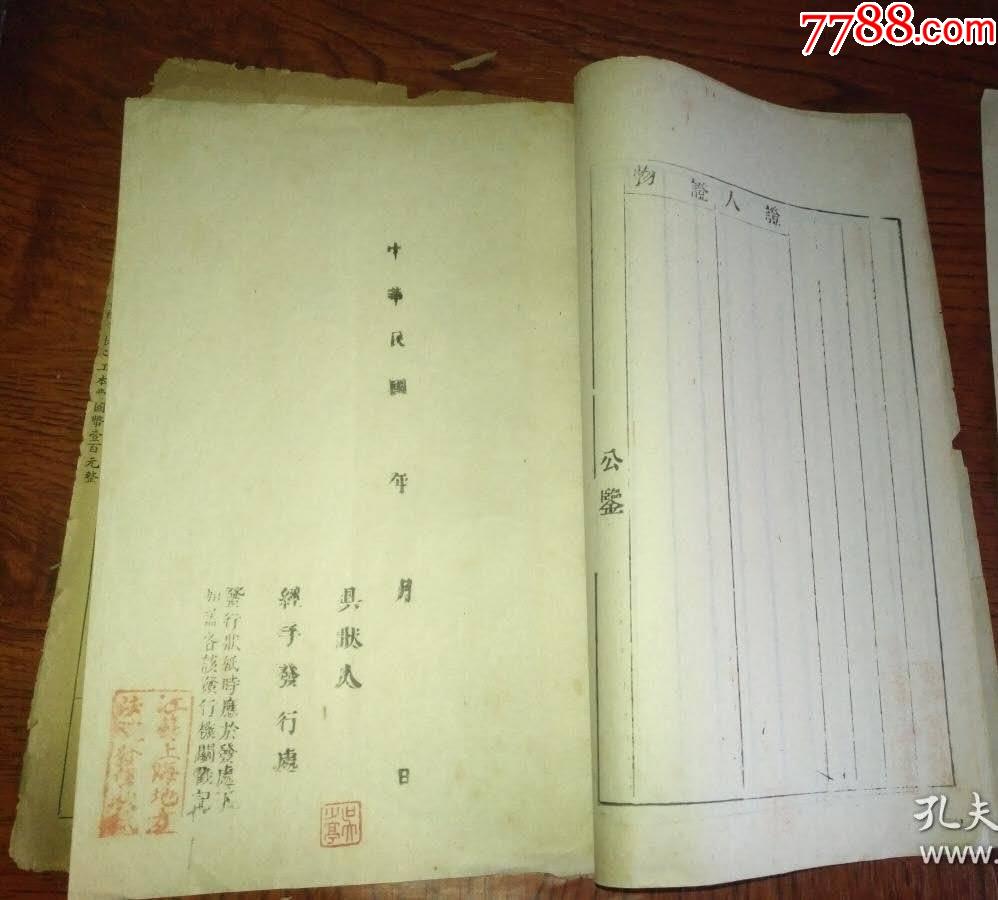 7788.com
證人
證
物
公鑒
中華民國 年 月 日
具狀人
經手發行處
發行狀紙時應於發處下
加蓋各該發行機關戳記
江蘇上海地方
工本
國幣壹百元整
孔夫
www.